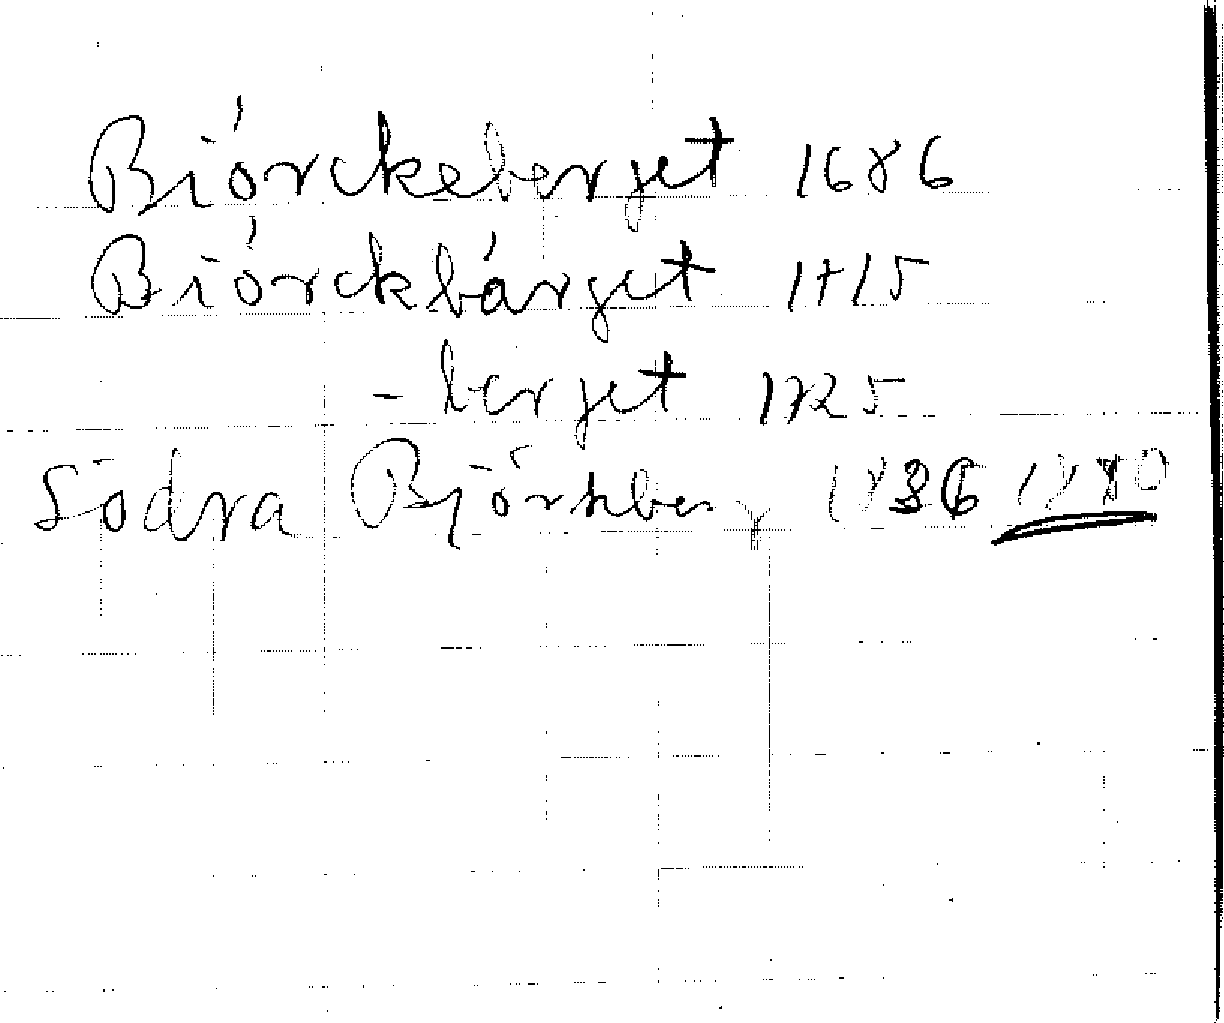 Biórckeberget 1686
Biórckbárget 1715
- berget 1725
Södra Björkberg